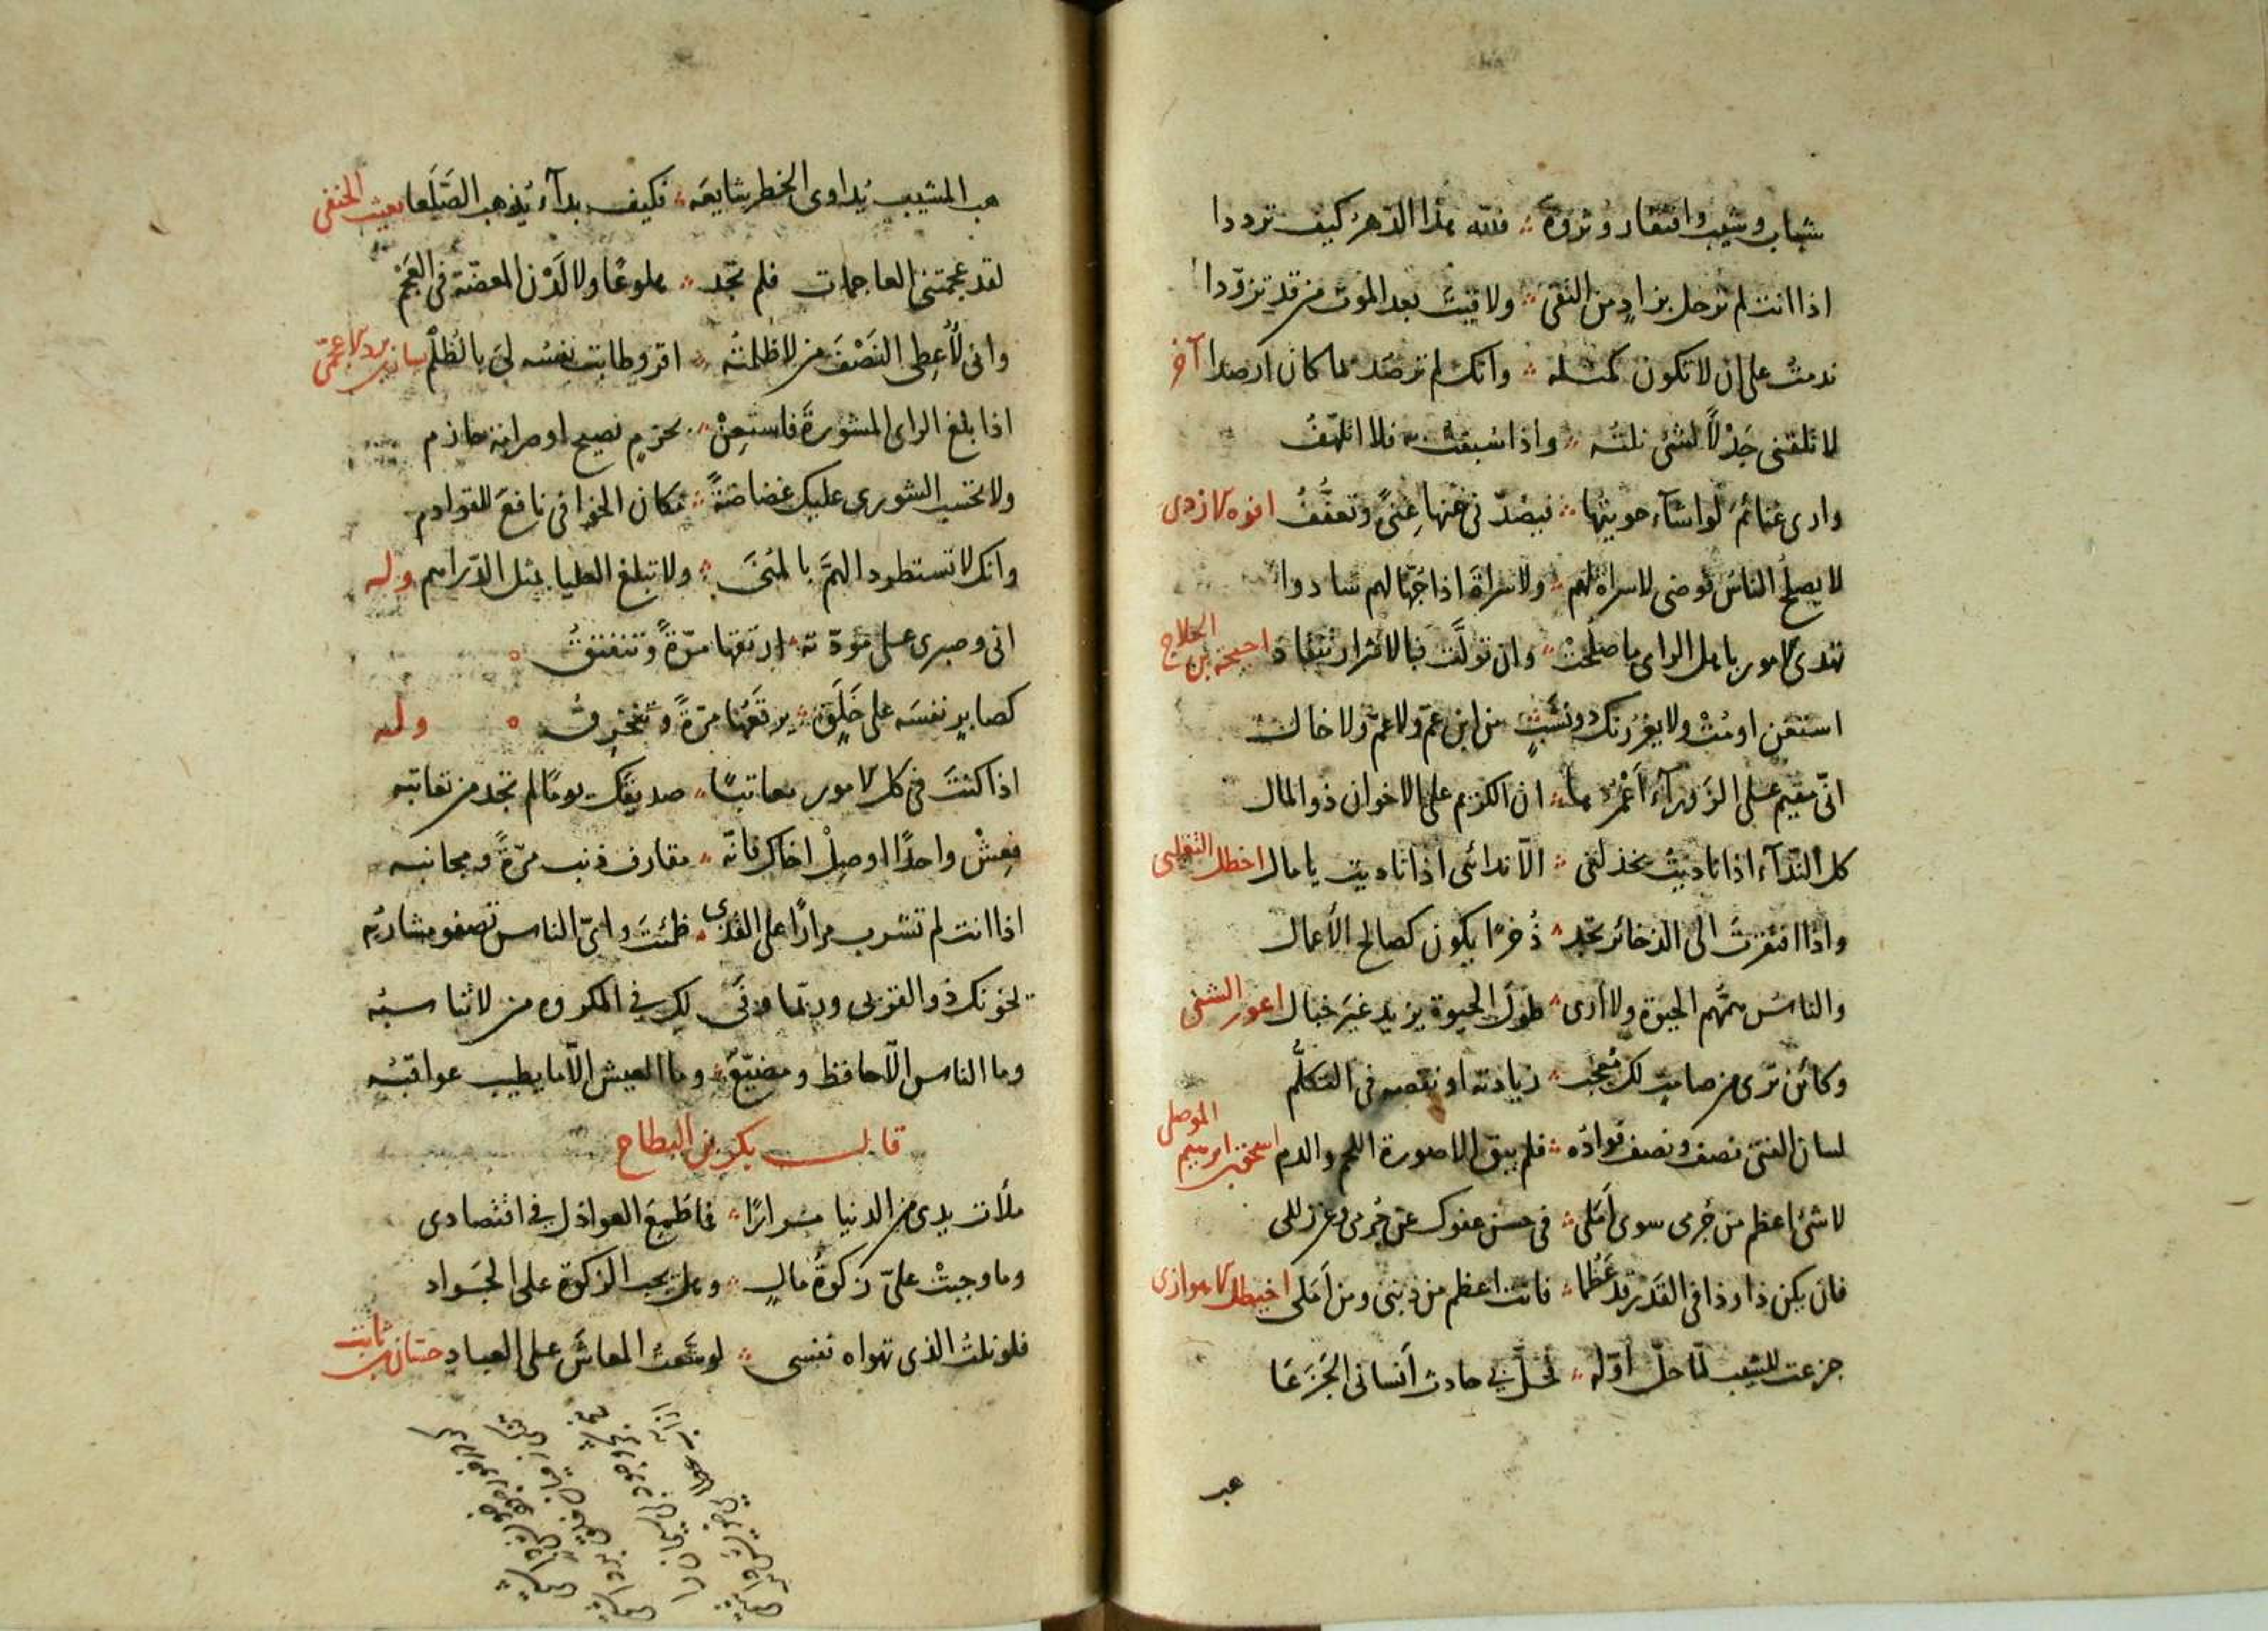 شباب وشيب وافتقار وثروة فلله هذا الدهر كيف ترددا
اذا انت لم ترحل بزاد من التقى ولاقيت بعد الموت من قد تزودا
ندمت على ان لا تكون كمثله وانك لم ترصد لما كان ارصدا آخر
لا تلقنى جذلًا لشئ نلته واذا سبقت به فلا اتلهف
وارى غنائم لو اشآء حويتها فيصدنى عنها غنى وتعفف افوه الازدى
لا يصلح الناس فوضى لا سراة لهم ولا سراة اذا جهالهم سادوا
تهدى الامور باهل الراى ما صلحت وان تولت فبالاشرار تنقاد احيحة بن الجلاح
استغن او مت ولا يغررنك ذو نشب من ابن عم ولا عم ولا خال
انى مقيم على الزورآء اعمرها ان الكريم على الاخوان ذو المال
كل الندآء اذا ناديت يخذلنى الا ندائى اذا ناديت يا مال اخطل التغلبى
واذا افتقرت الى الذخائر لم تجد ذخرا يكون كصالح الأعمال
والناس همهم الحيوة ولا أرى طول الحيوة يزيد غير خبال اعور الشنى
وكائن ترى من صامت لك معجب زيادته او نقصه فى التكلم
لسان الفتى نصف ونصف فؤاده فلم يبق الا صورة اللحم والدم اسحق بن ابرهيم الموصلى
لا شئ اعظم من جرمى سوى أملى فى حسن عفوك عن جرمى وعن زللى
فان يكن ذا وذا فى القدر قد عظما فانت اعظم من ذنبى ومن أملى اخيطل الاهوازى
جزعت للشيب لما حل أوله لحل بى حادث أنسانى الجزعا
هب
هب المشيب يداوى الخطر شايعه فكيف بدآء يذهب الصلعا بعيث الحنفى
لقد عجمتنى العاجمات فلم تجد هلوعًا ولا لدن المعضة فى العجم
وانى لأعطى النصف من لا ظلمته اقر وطابت نفسه لى بالظلم بشار بن برد الاعمى
اذا بلغ الراى المشورة فاستعن بحزم نصيح او مرانة حازم
ولا تحسب الشورى عليك غضاضة مكان الخوافى نافع للقوادم
وانك لا تستطرد الهم بالمنى ولا تبلغ العليا بمثل الدراهم وله
انى وصبرى على مودته ارتقها مرة وتنفتق
كصابر نفسه على خلق يرقعها مرة وتنخرق وله
اذا كنت فى كل الامور معاتبًا صديقك يومًا لم تجد من تعاتبه
فعش واحدًا او صل اخاك فانه مقارف ذنب مرة ومجانبه
اذا انت لم تشرب مرارًا على القذى ظمئت واى الناس تصفو مشاربه
يخونك ذو القربى وربما وفى لك فى المكروه من لا تناسبه
وما الناس الا حافظ ومضيع وما العيش الا ما يطيب عواقبه
قال بكر بن البطاح
ملأت يدى من الدنيا مرارًا فما طمع العواذل فى اقتصادى
وما وجبت على زكوة مال وهل يجب الزكوة على الجواد
فلو نلت الذى تهواه نفسى لوسعت المعاش على العباد حسان بن ثابت